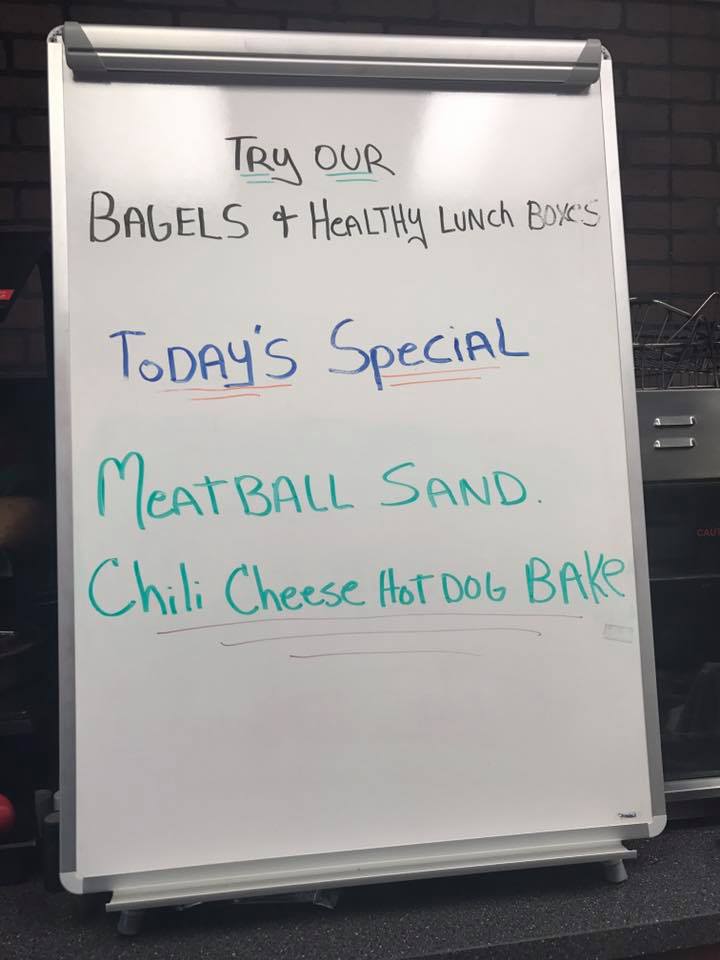 TRY OUR
BAGELS & HEALTHY LUNCH BOXES
TODAY'S SPECIAL
MEATBALL SAND.
Chili Cheese HOT DOG BAKE
CAUT